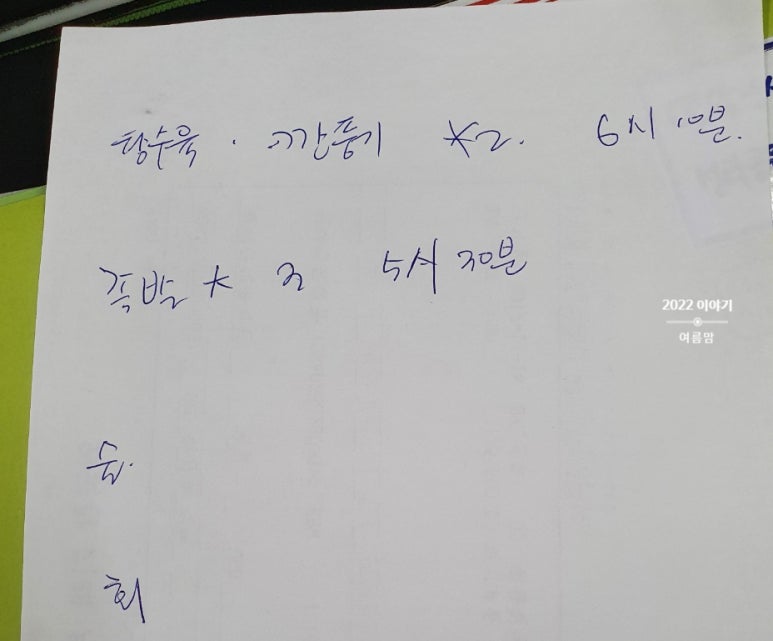 탕수육 · 깐풍기 *2. 6시 10분.
족발 * 2 5시 30분
술.
회
2022 이야기
여름맘